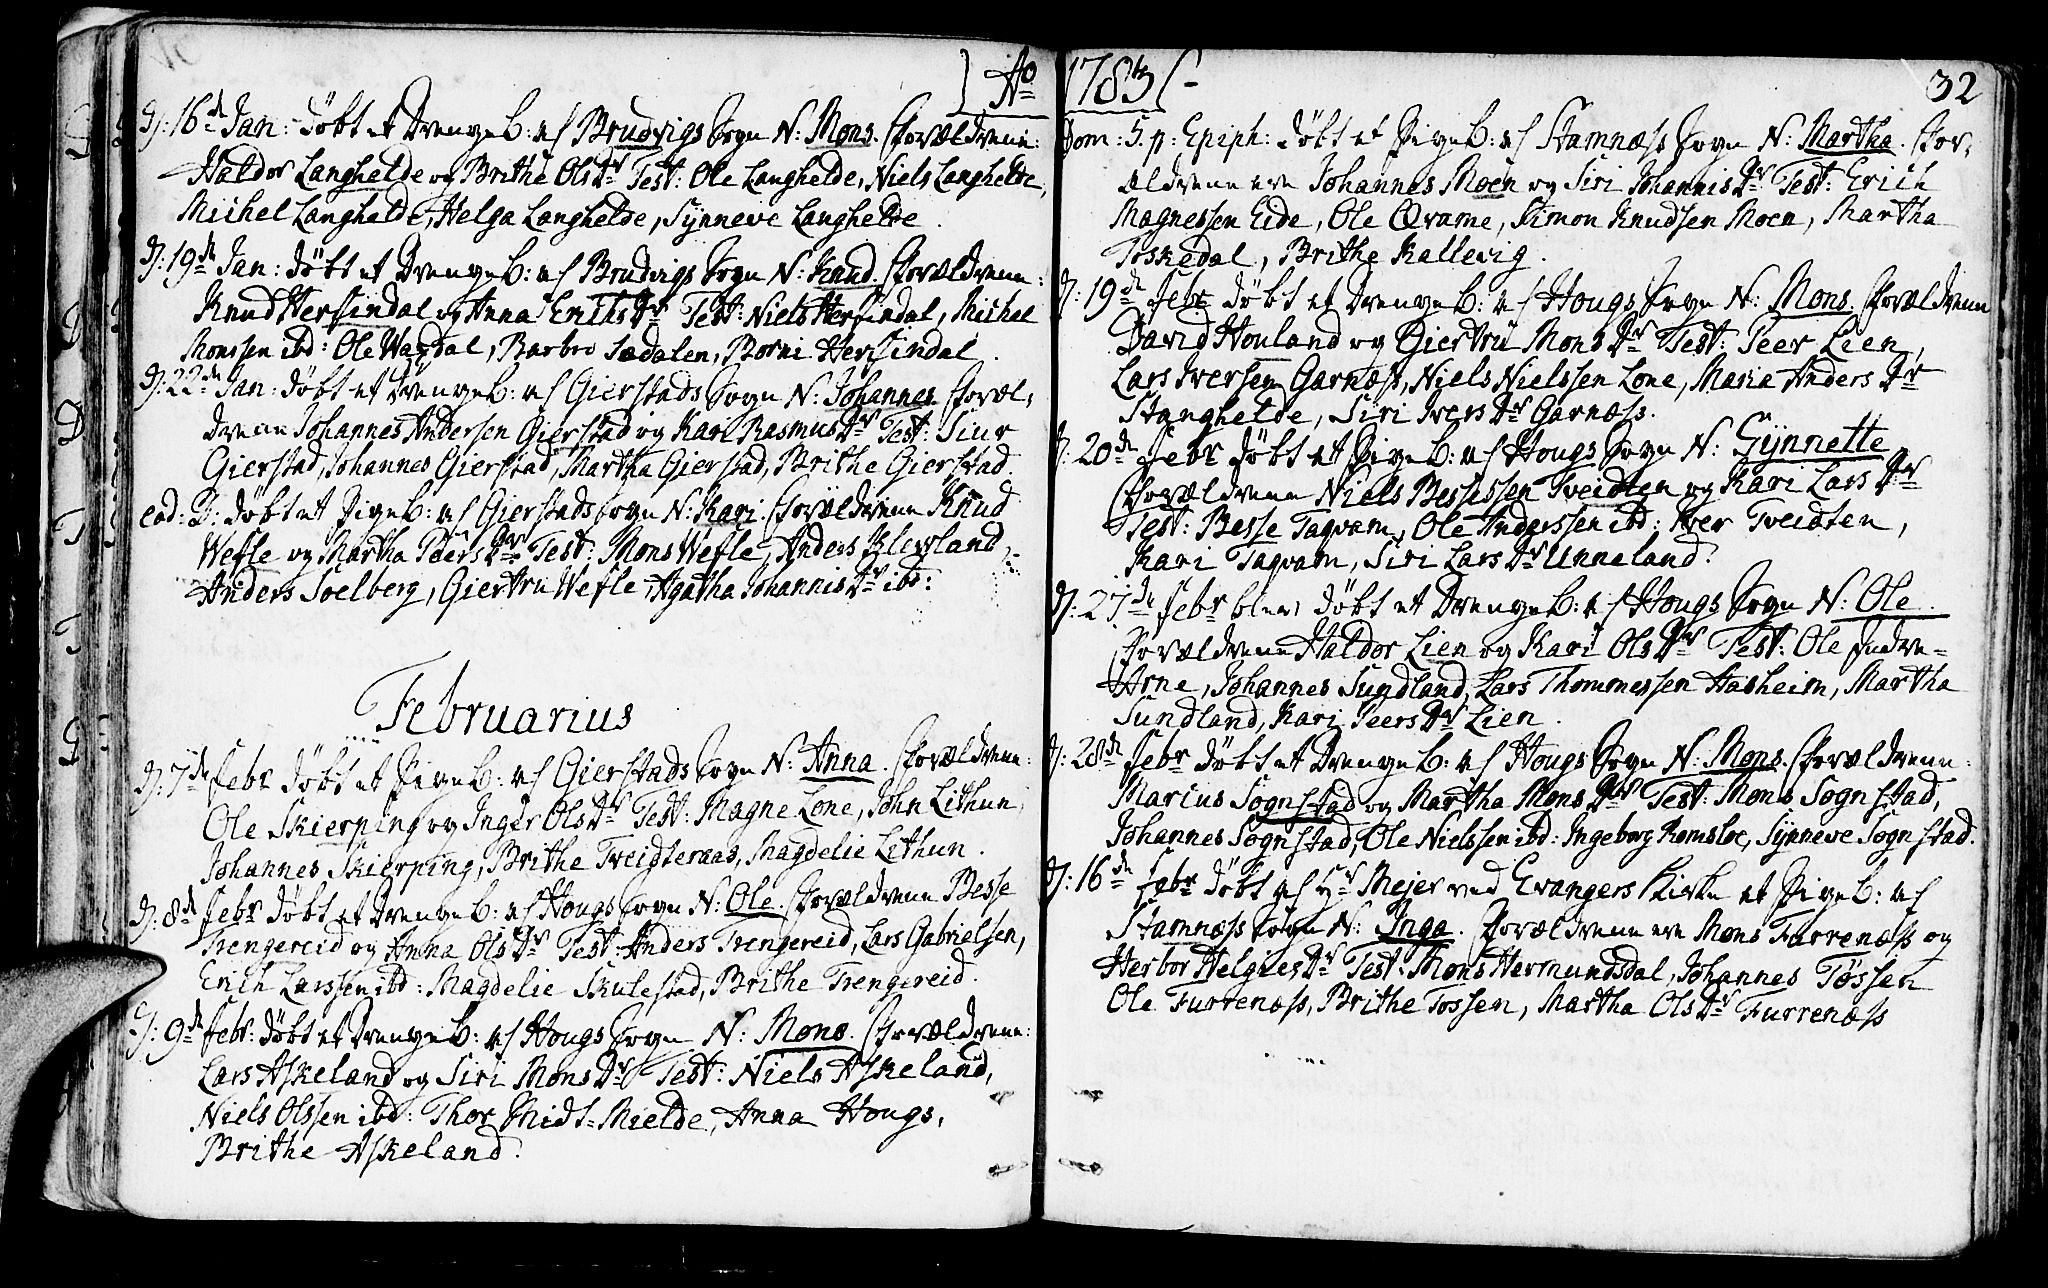 Ao
D: 16de Jan: döbt et DrengeB: af Brudvigs Sogn N: Mons. Forældrene:
Haldor Langhelde og Brithe OlsDr Test: Ole Langhelde, Niels Langhelde,
Michel Langhelde, Helga Langhelde, Synneve Langhelde.
D: 19de Jan: döbt et DrengeB: af Brudvigs Sogn N: Knud. Forældrene:
Knud Hersindal og Anna ErichsDr Test: Niels Hersindal, Michel
Monssen ibd: Ole Wagdal, Barbro Sædalen, Borni Hersindal.
D: 22de Jan: döbt et DrengeB: af Gierstads Sogn N: Johannes. Foræl,
drene Johannes Andersen Gierstad og Kari RasmusDr Test: Siur
Gierstad, Johannes Gierstad, Martha Gierstad, Brithe Gierstad.
eod: D: döbt et PigeB: af Gierstads Sogn N: Kari. Forældrene Knud
Wefle og Martha PeersDr Test: Mons Wefle, Anders Blewland,
Anders Soelberg, Giertru Wefle Agatha JohannisDr ibd:
Februarius
D: 7de Febr döbt et PigeB: af Gierstads Sogn N: Anna. Forældrene:
Ole Skierping og Inger OlsDr Test: Magne Lone, John Lithun,
Johannes Skierping, Brithe Tveidteraas, Magdelie Lithun.
D: 8de Febr döbt et DrengeB: af Hougs Sogn N: Ole. Forældrene Besse
Trengereid og Anna OlsDr Test: Anders Trengereid, Lars Gabrielsen,
Erich Larssen ibd: Magdelie Skulestad, Brithe Trengereid.
D: 9de Febr: döbt et DrengeB: af Hougs Sogn N: Mons. Forældrene:
Lars Askeland og Siri MonsDr Test: Niels Askeland,
Niels Olssen ibd: Thor Midt=Mielde, Anna Hougs,
Brithe Askeland.
1783
32
Dom: 5. p: Epiph: döbt et PigeB: af Stamnæss Sogn N: Martha. For,
ældrene ere Johannes Moen og Siri JohannisDr Test: Erich
Magnessen Eide, Ole Qvame, Simon Knudsen Moen, Martha
Toskedal, Brithe Kallevig.
D: 19de Febr döbt et DrengeB: af Hougs Sogn N: Mons. Forældrene
David Houland og Giertru MonsDr Test: Peer Lien,
Lars Iversen Garnæss, Niels Nielssen Lone, Maria AndersDr
Stanghelde, Siri IversDr Garnæss.
D: 20de Febr döbt et PigeB: af Hougs Sogn N: Gynnette
Forældrene Niels Bessessen Tveidten og Kari LarsDr
Test: Besse Taqvam, Ole Anderssen ibd: Iver Tveidten,
Kari Taqvam, Siri LarsDr Unneland.
D: 27de Febr blev döbt et DrengeB: af Hougs Sogn N: Ole.
Forældrene Haldor Lien og Kari OlsDr Test: Ole Indre=
Arne, Johannes Sundland, Lars Thommessen Aasheim, Martha
Sundland, Kari PeersDr Lien.
D: 28de Febr döbt et DrengeB: af Hougs Sogn N: Mons. Forældrene:
Marius Sognstad og Martha MonsDr Test: Mons Sognstad,
Johannes Sognstad, Ole Nielssen ibd: Ingeborg Romsloe, Synneve Sognstad.
D: 16de Febr döbt af Hr Mejer ved Evangers Kirke et PigeB: af
Stamnæss Sogn N: Inga. Forældrene ere Mons Furrenæss og
Herbor HelgiesDr Test: Mons Hermundsdal, Johannes Tössen
Ole Furrenæss, Brithe Tossen, Martha OlsDr Furrenæss